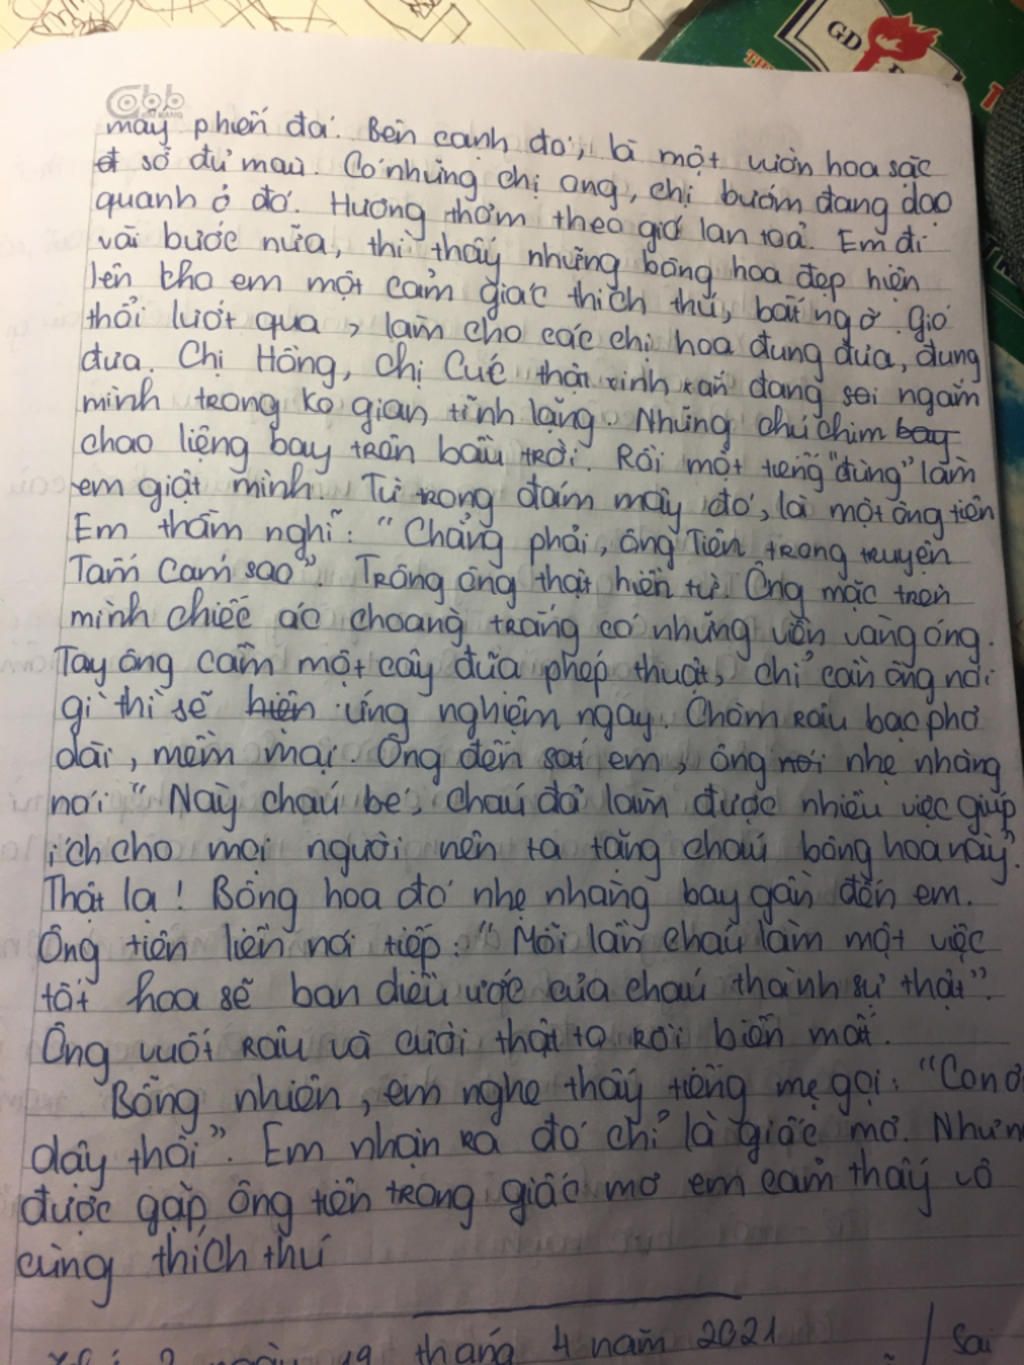 mấy phiến đá. Bên cạnh đó, là một vườn hoa sặc
sỡ đủ màu. Có những chị ong, chị bướm đang dạo
quanh ở đó. Hương thơm theo gió lan toả. Em đi
vài bước nữa, thì thấy những bông hoa đẹp hiện
lên cho em một cảm giác thích thú, bất ngờ. Gió
thổi lướt qua, làm cho các chị hoa đung đưa, đung
đưa. Chị Hồng, chị Cúc thật xinh xắn đang soi ngắm
mình trong ko gian tĩnh lặng. Những chú chim bay
chao liệng bay trên bầu trời. Rồi một tiếng "đùng" làm
em giật mình. Từ trong đám mây đó, là một ông tiên
Em thầm nghĩ: "Chẳng phải, ông Tiên trong truyện
Tấm Cám sao". Trông ông thật hiền từ. Ông mặc trên
mình chiếc áo choàng trắng có những viền vàng óng.
Tay ông cầm một cây đũa phép thuật, chỉ cần ông nói
gì thì sẽ hiện ứng nghiệm ngay. Chòm râu bạc phơ
dài, mềm mại. Ông đến sát em, ông nói nhẹ nhàng
nói "Này cháu bé, cháu đã làm được nhiều việc giúp
ích cho mọi người nên ta tặng cháu bông hoa này".
Thật lạ! Bông hoa đó nhẹ nhàng bay gần đến em.
Ông tiên liền nói tiếp: "Mỗi lần cháu làm một việc
tốt hoa sẽ ban điều ước của cháu thành sự thật".
Ông vuốt râu và cười thật to rồi biến mất.
Bỗng nhiên, em nghe thấy tiếng mẹ gọi: "Con ơ
dậy thôi". Em nhận ra đó chỉ là giấc mơ. Nhưn
được gặp ông tiên trong giấc mơ em cảm thấy vô
cùng thích thú
19 tháng 4 năm 2021 Sai
GD